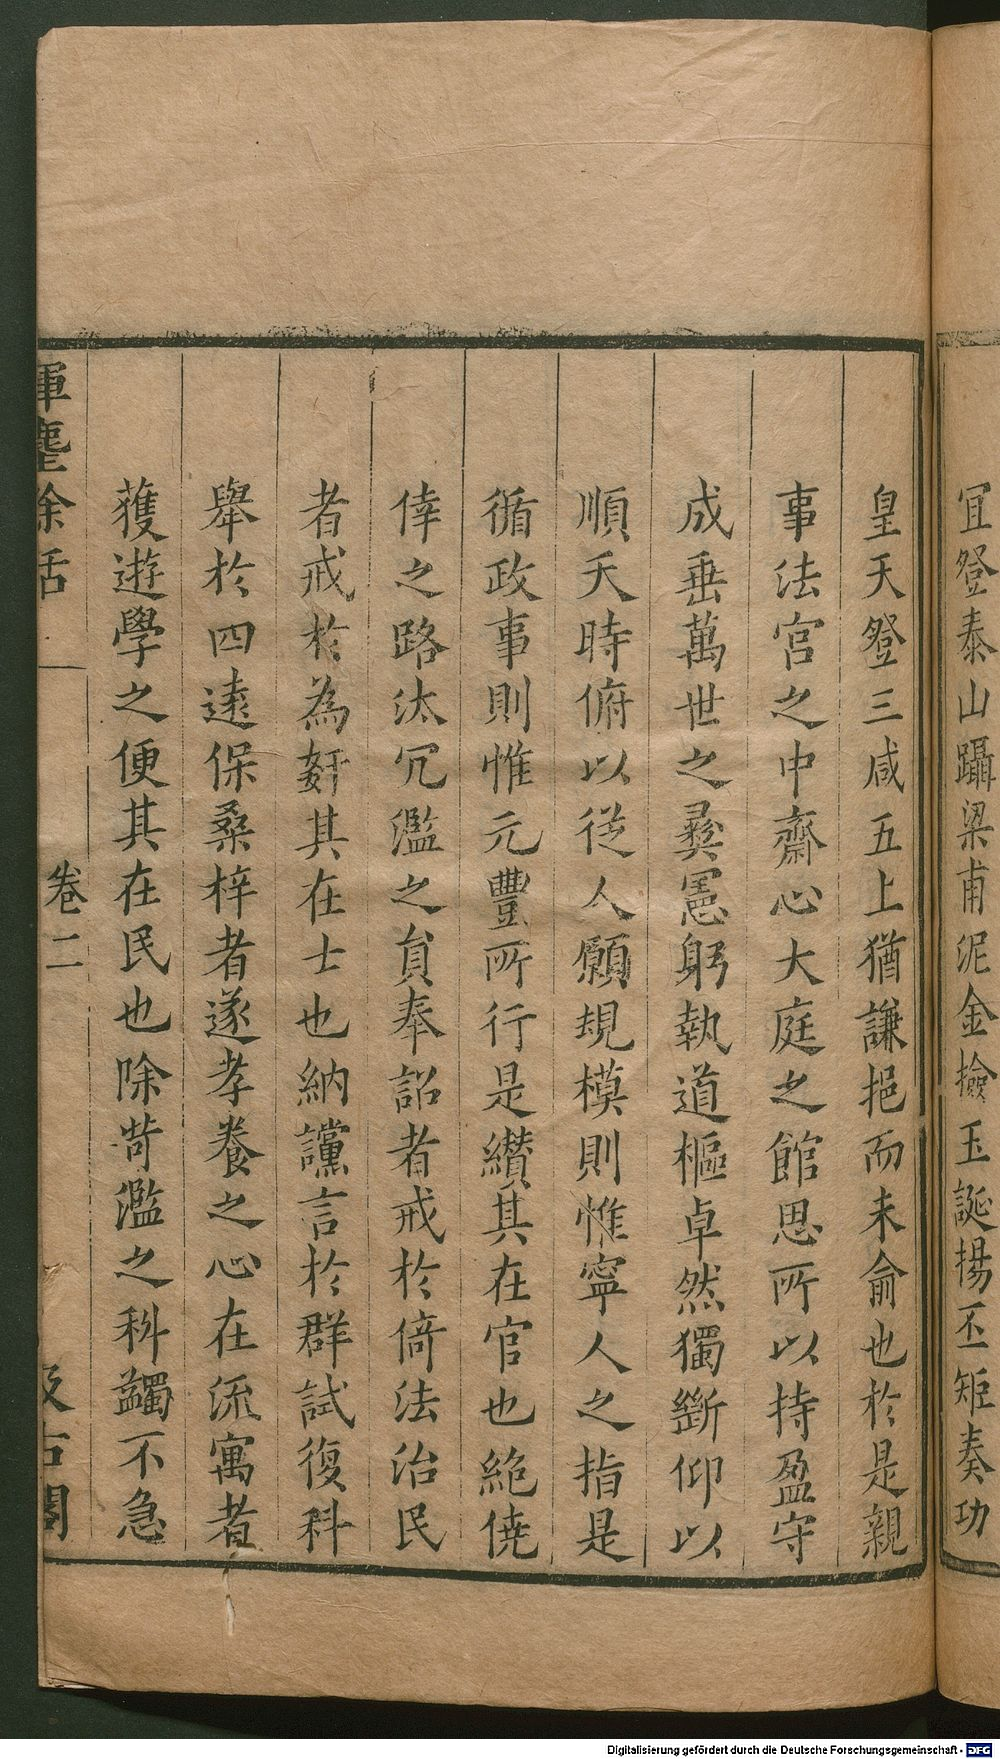 宜登泰山躡梁甫泥金撿玉誕揚丕矩奏功
皇天登三咸五上猶謙挹而未俞也於是親
事法宮之中齋心大庭之館思所以持盈守
成垂萬世之彛憲躬執道樞卓然獨斷仰以
順天時俯以從人願規模則惟寧人之指是
循政事則惟元豐所行是纉其在官也絶僥
倖之路汰冗濫之貟奉詔者戒於倚法治民
者戒於為姧其在士也納讜言於群試復科
舉於四遠保桑梓者遂孝養之心在流寓者
獲遊學之便其在民也除苛濫之科蠲不急
揮麈餘話
卷二
汲古閣
Digitalisierung gefördert durch die Deutsche Forschungsgemeinschaft - DFG